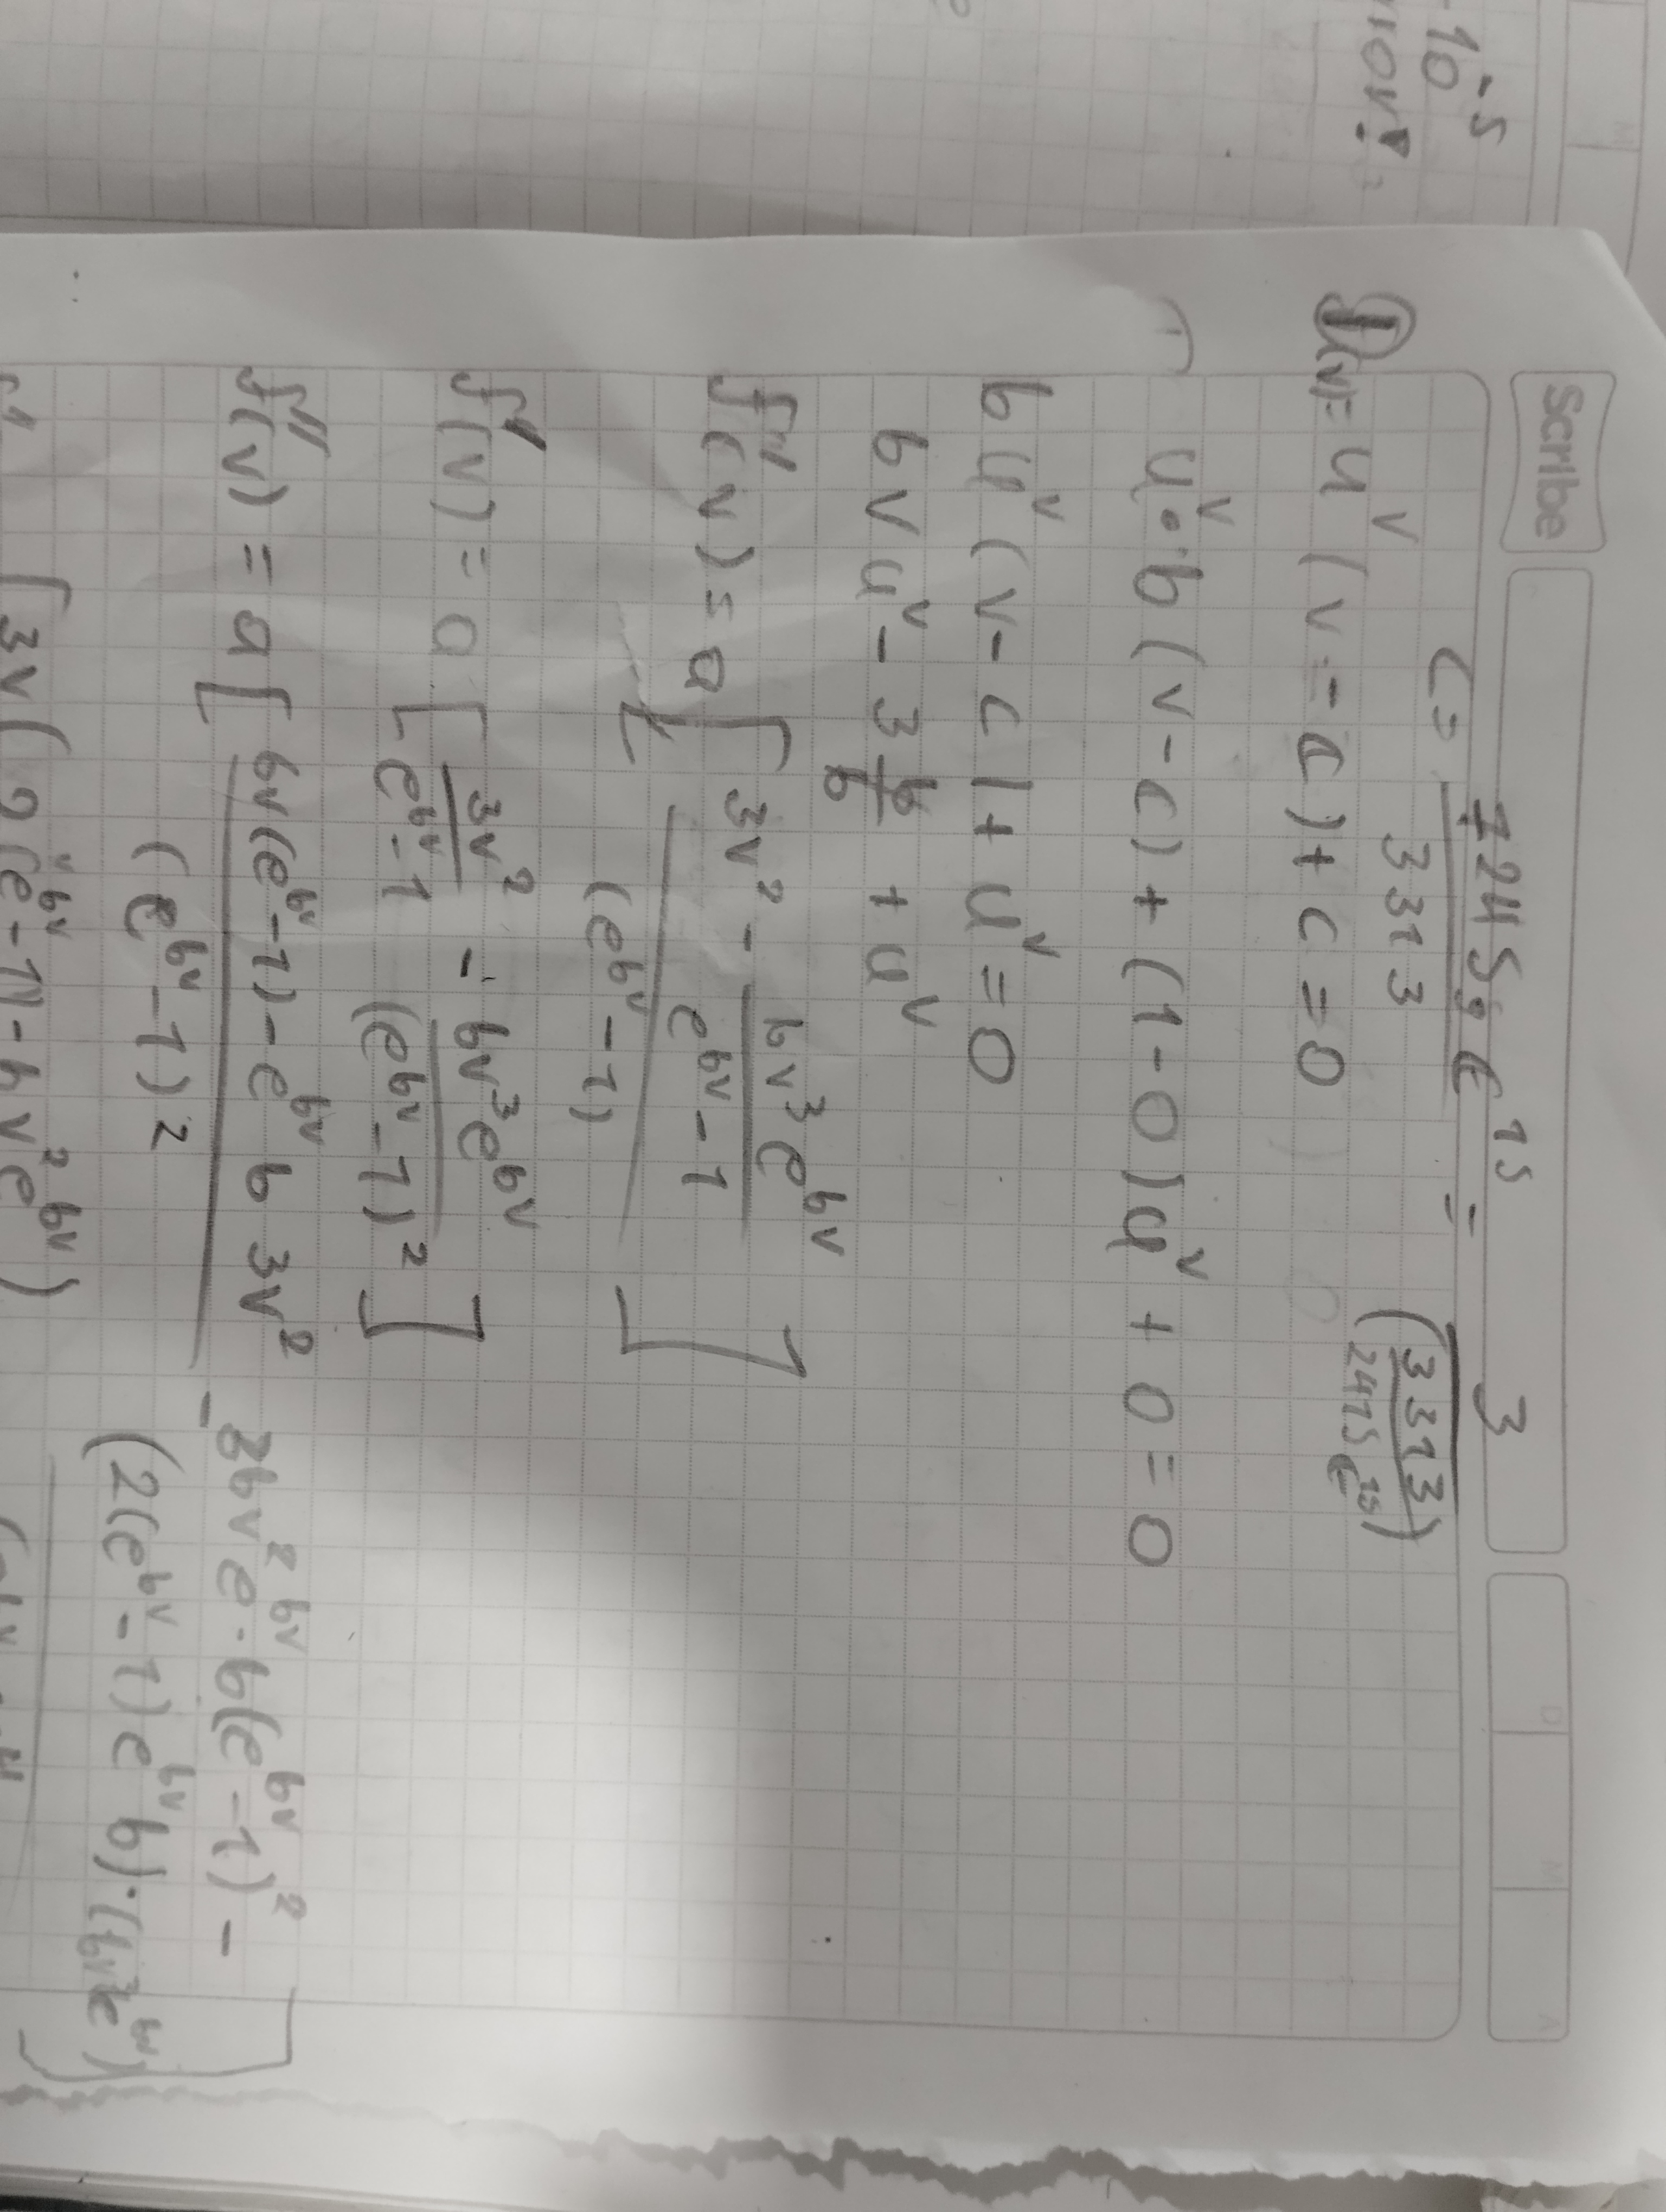 -10^-5
rror!
Scribe
D M A
c = 7245,9 E^15 / 3313 = 3 / (3313 / 2415 E^15)
D(v) = u^v (v - c) + c = 0
u^v · b (v - c) + (1 - 0) u^v + 0 = 0
b u^v (v - c) + u^v = 0
b v u^v - 3 b/b + u^v
f'(v) = a [ (3v^2 - b v^3 e^bv / (e^bv - 1)) / (e^bv - 1) ]
f'(v) = a [ 3v^2 / (e^bv - 1) - b v^3 e^bv / (e^bv - 1)^2 ]
f''(v) = a [ (6v (e^bv - 1) - e^bv b 3v^2) / (e^bv - 1)^2 - 3b v^2 e^bv · b (e^bv - 1)^2 -
(2 (e^bv - 1) e^bv b) · (b v^3 e^bv) ]
[ 3v ( 2 (e^bv - 1) - b v^2 e^bv )